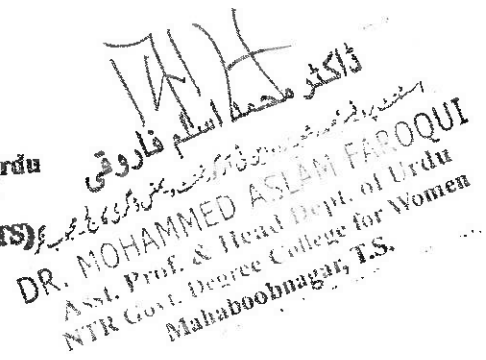 ڈاکٹر محمد اسلم فاروقی
rdu
TS)
DR. MOHAMMED ASLAM FAROOQUI
Asst. Prof. & Head Dept. of Urdu
NTR Govt. Degree College for Women
Mahaboobnagar, T.S.